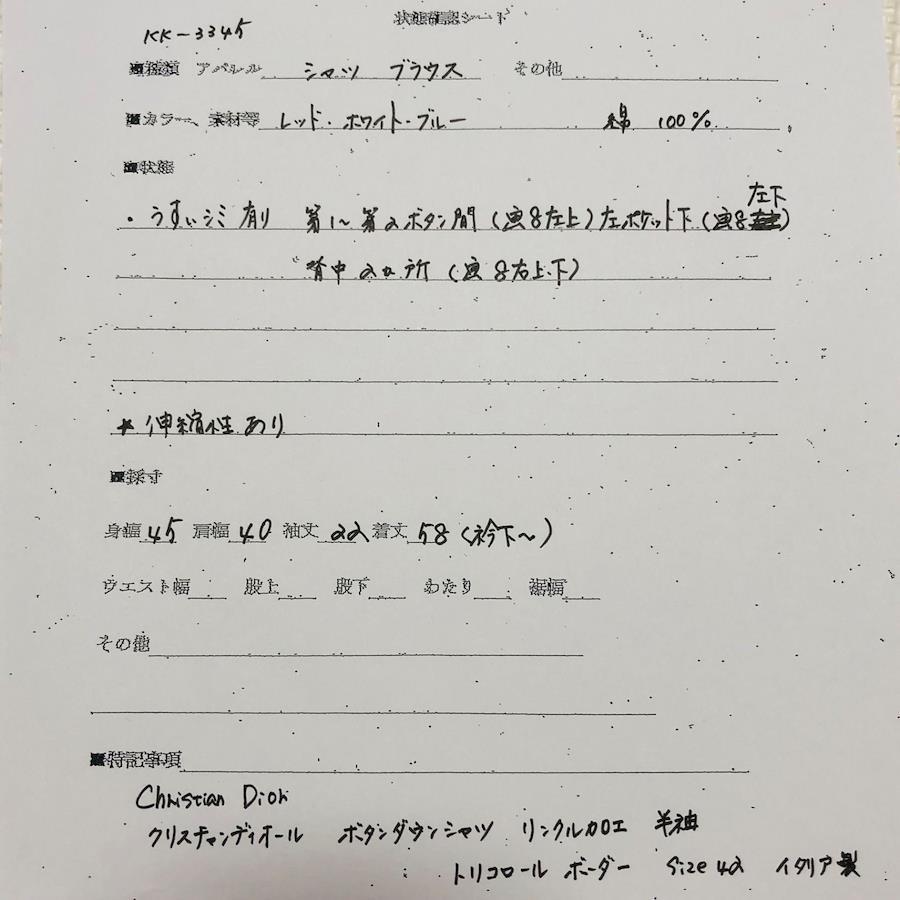 状態確認シート
KK-3345
■種類 アパレル シャツ ブラウス その他
■カラー、素材等 レッド・ホワイト・ブルー 綿 100%
■状態
左下
・うすいシミ有り 第1〜第2ボタン間(画8左上)左ポケット下(画8)
背中2ヵ所(画8右上.下)
*伸縮性あり
■採寸
身幅 45 肩幅 40 袖丈 22 着丈 58(衿下〜)
ウエスト幅 股上 股下 わたり 裾幅
その他
■特記事項
Christian Dior
クリスチャンディオール ボタンダウンシャツ リンクルカロエ 半袖
トリコロール ボーダー size 42 イタリア製